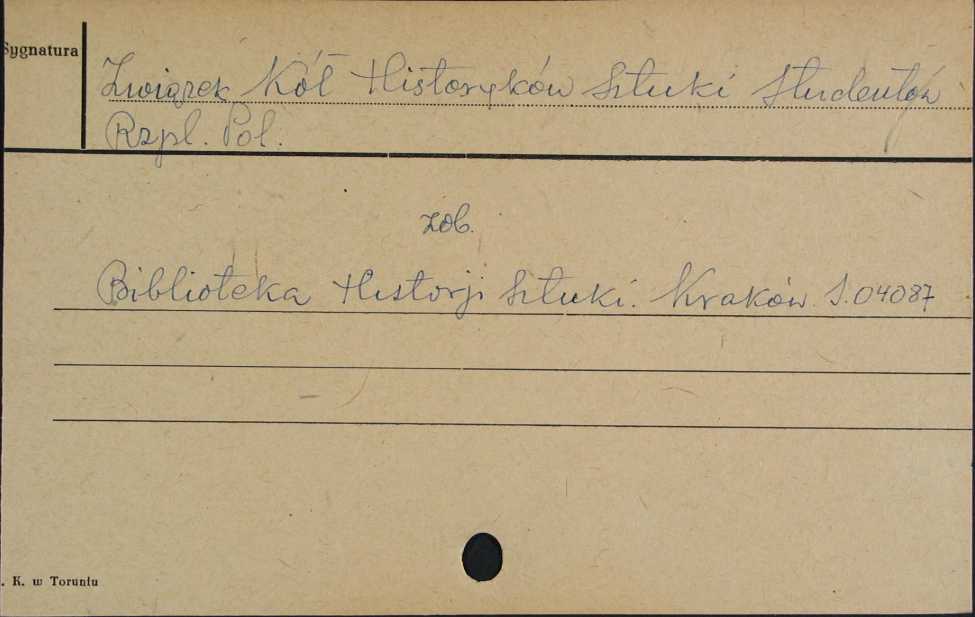 Sygnatura
Związek Kół Historyków Sztuki Studentów
Rzpl. Pol.
zob.
Biblioteka Historji Sztuki. Kraków S.04087
. K. w Toruniu